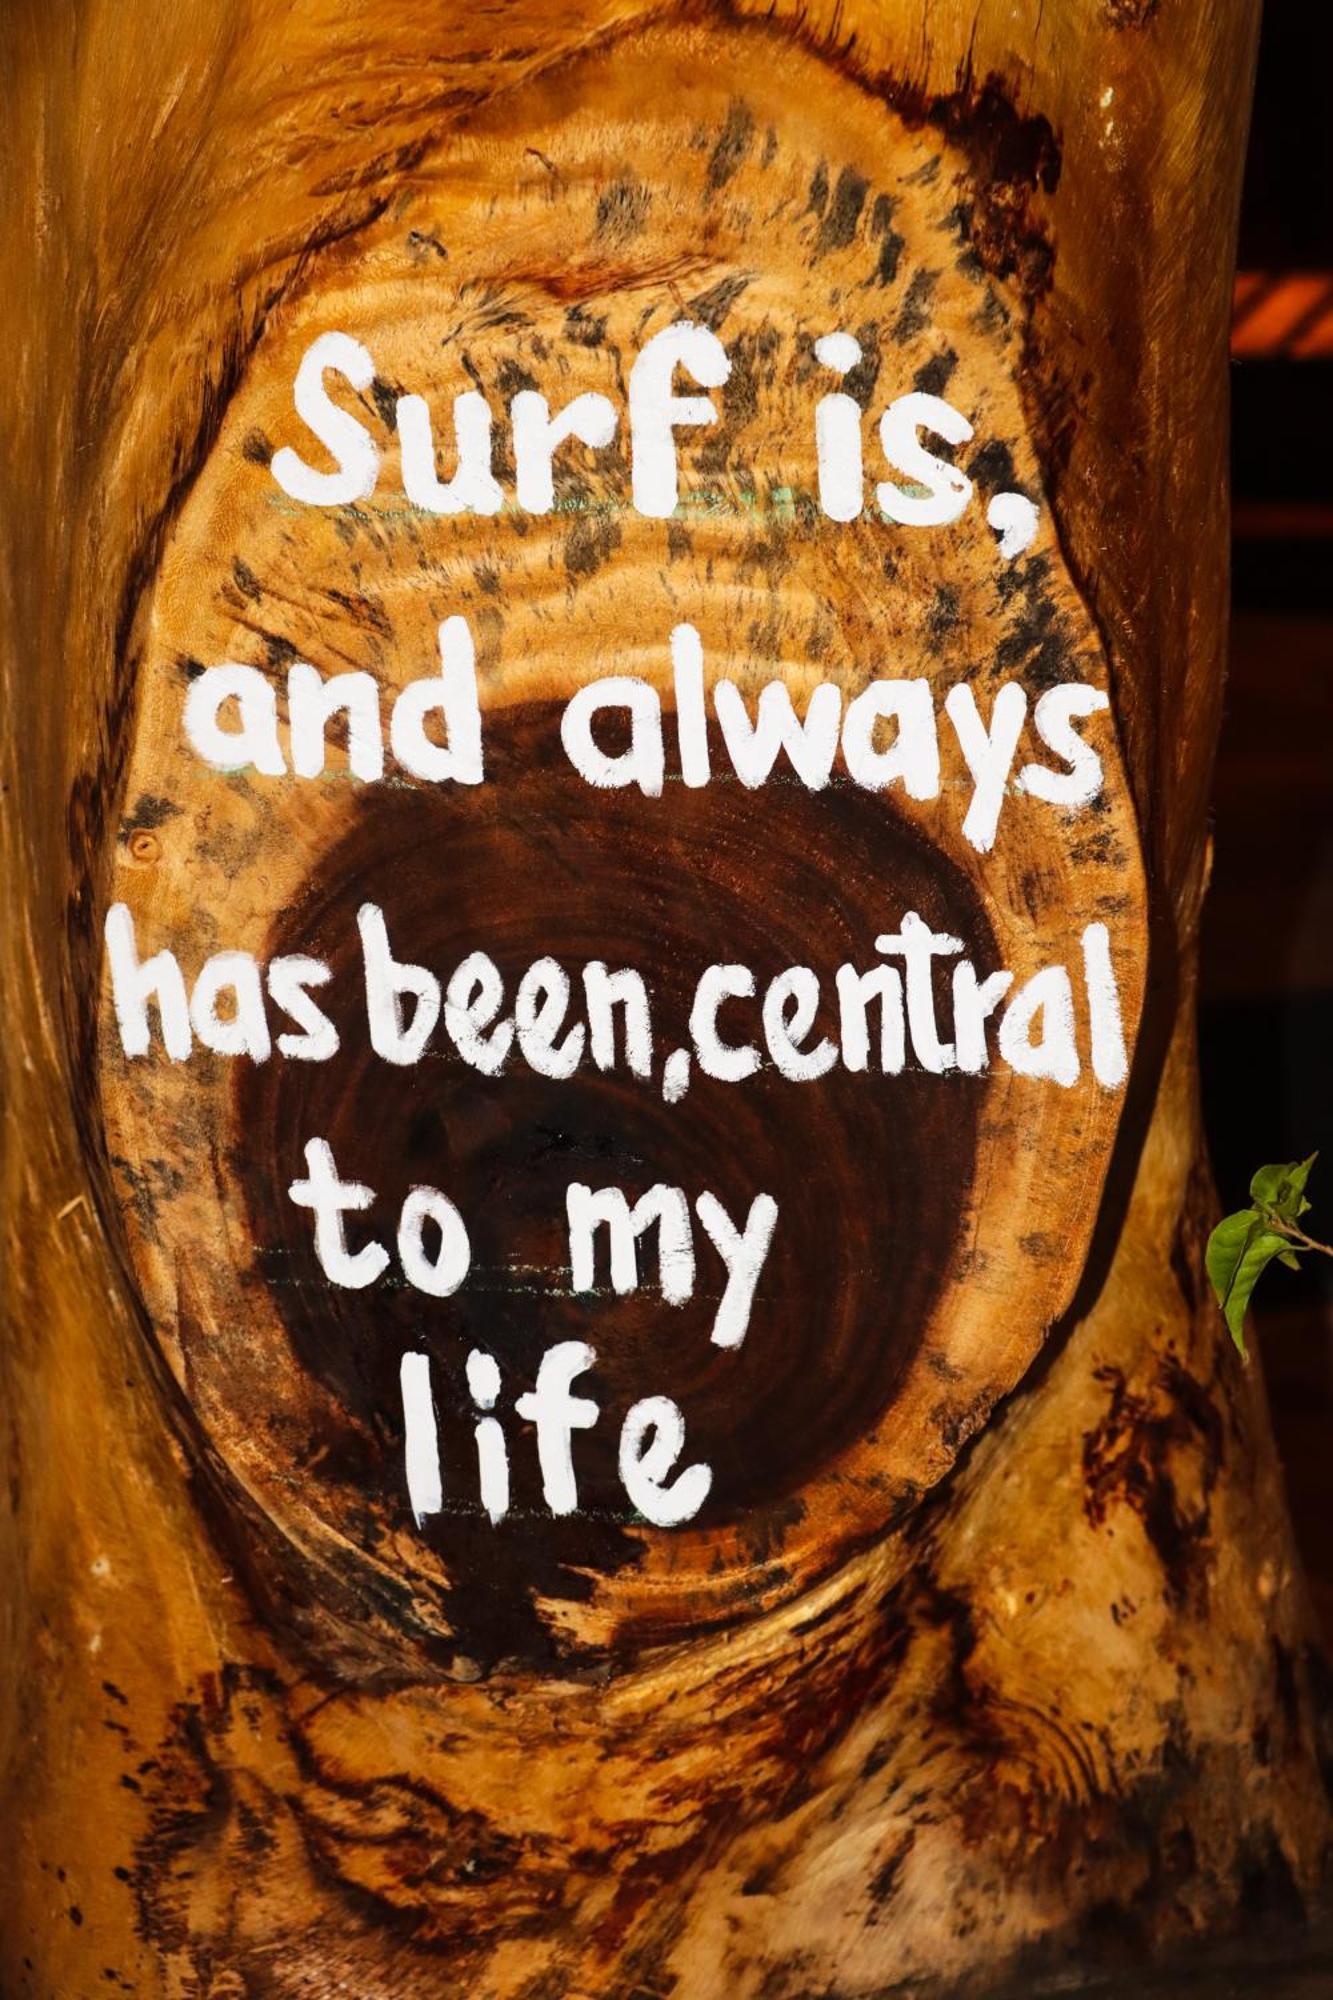 Surf is,
and always
has been, central
to my
life